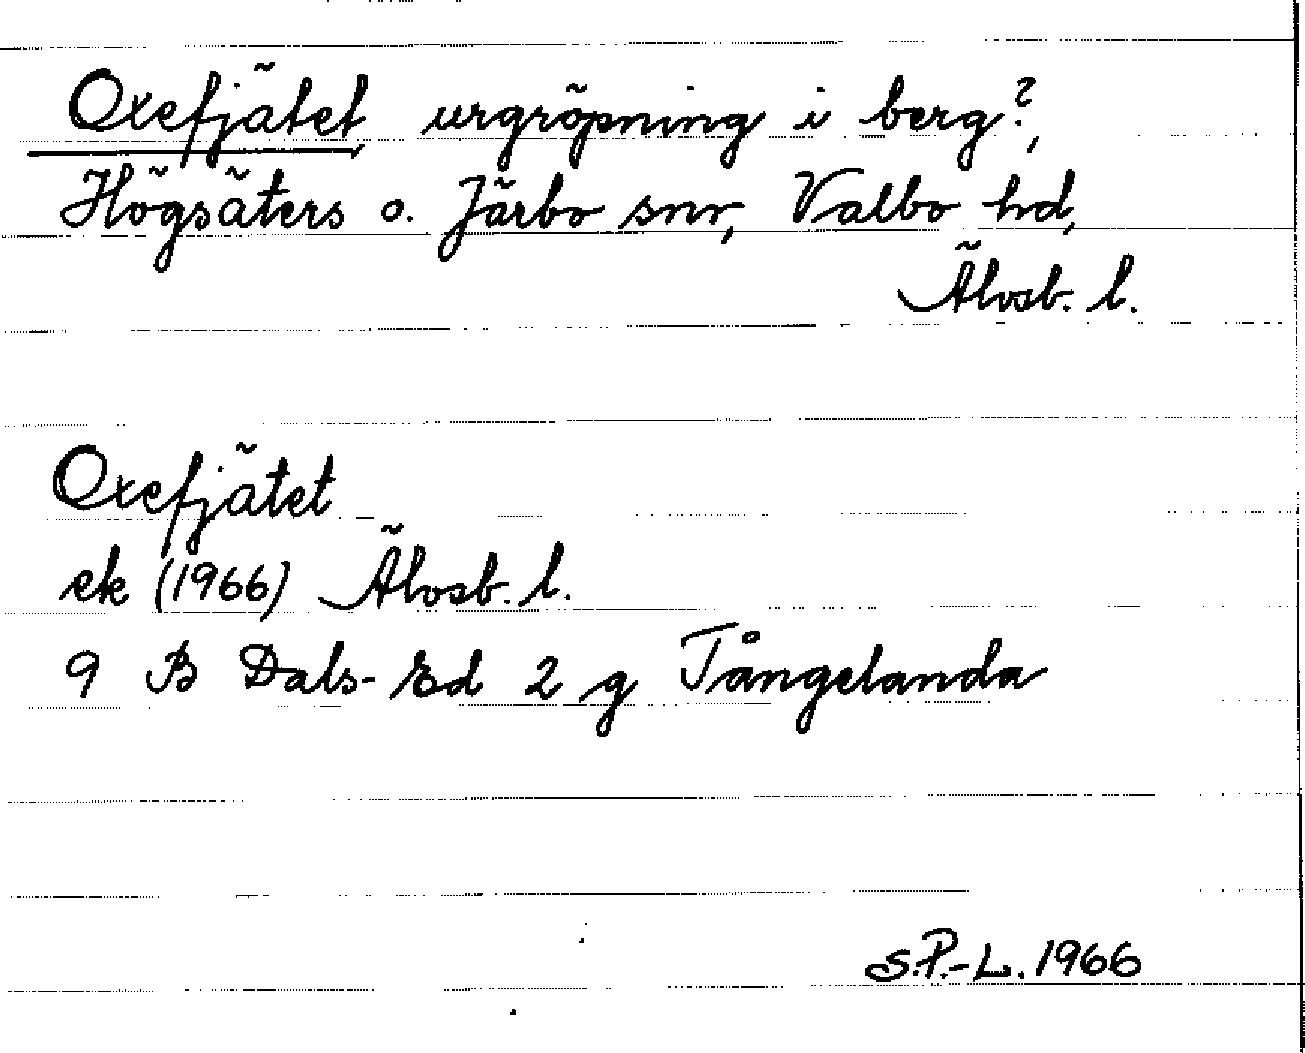 Oxefjätet, urgröpning i berg?,
Högsäters o. Järbo snr, Valbo hd,
Älvsb. l.
Oxefjätet
ek (1966) Älvsb. l.
9 B Dals-Ed 2 g Tångelanda
S.P.-L. 1966